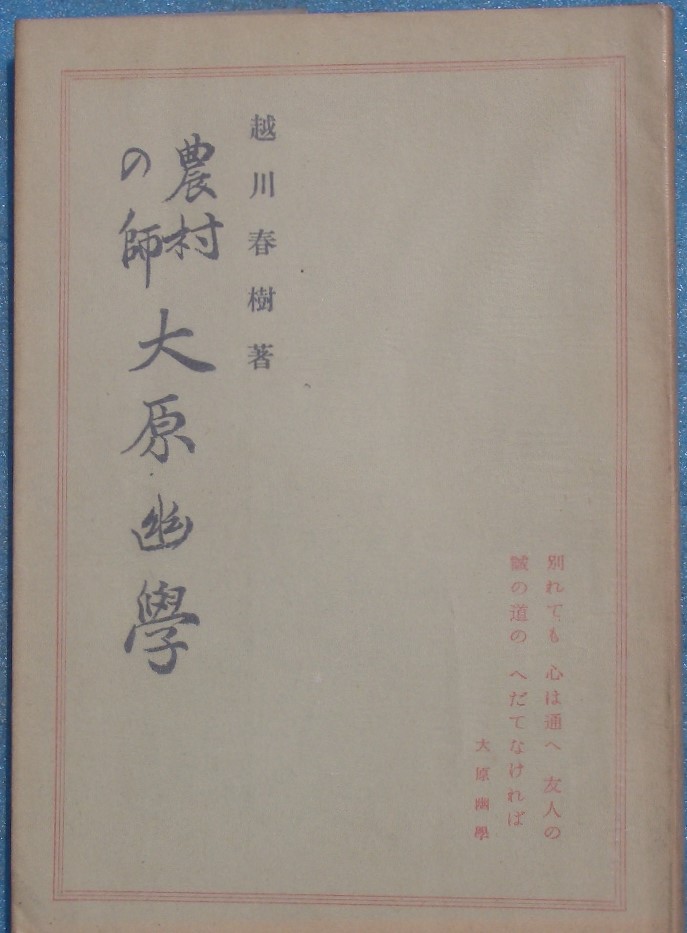 越川春樹著
農村
の師
大原幽學
別れても 心は通へ 友人の
誠の道の へだてなければ
大原幽學